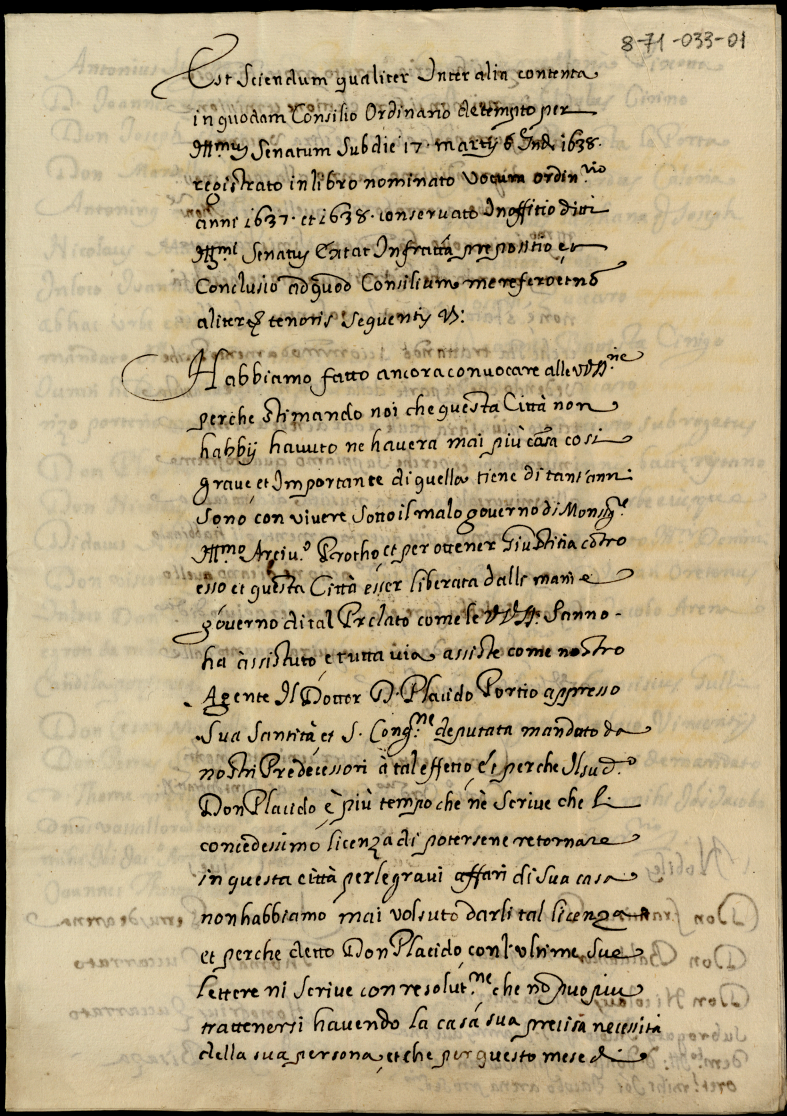 8-71-033-01
Est Sciendum qualiter Inter alia contenta
in quodam Consilio Ordinario detempto per
Ill.mus Senatum Sub die 17. martij 6.e Ind. 1638.
registrato in libro nominato Vocum ordin.rio
anni 1637. et 1638. conservato In offitio ditti
Ill.mi Senatus Extat Infratta prepositio et
Conclusio ad quod Consilium me refero et nō
aliter tenoris Sequentis V:
Habbiamo fatto ancora convocare alle VV SS.rie
perche stimando noi che questa Città non
habbij havuto ne havera mai più casa cosi
grave et Importante di quella tiene di tant'anni
Sono con vivere Sotto il malo governo di Monsig.e
Ill.mo Arciv.o Protho, et per ottener Giustitia cōtro
esso et questa Città esser liberata dalle mani e
governo di tal Prelato come le VV SS. Sanno
ha assistuto e tutta via assiste come nostro
Agente Il Dotter D. Placido Portio appresso
Sua Santità et S. Cong.ne deputata mandato da
nostri Predecessori à tal effetto et perche Il sud.o
Don Placido è più tempo che ne Scrive che li
concedessimo licenza di potersene retornare
in questa città per le gravi affari di Sua casa
non habbiamo mai volsuto darli tal licenza
et perche detto Don Placido con l'ultime Sue
lettere ni Scrive con resolut.ne che nō può piu
trattenersi havendo la casa sua precisa necessità
della sua persona, et che per questo mese di